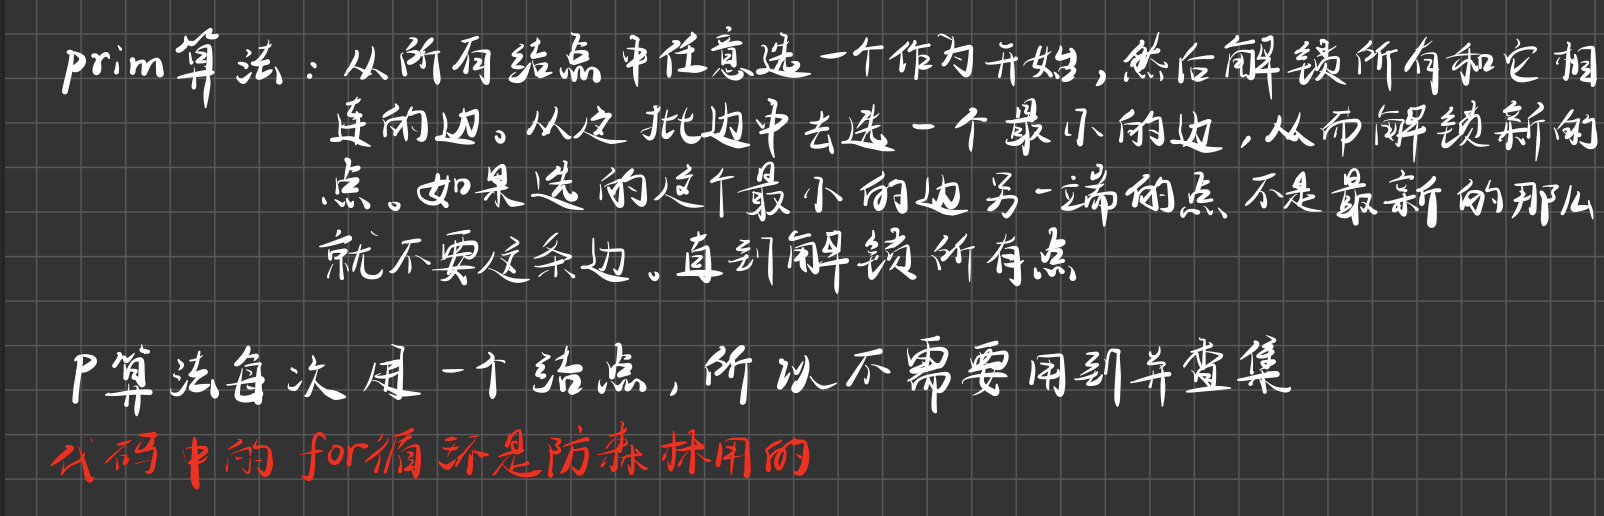 prim算法：从所有结点中任意选一个作为开始，然后解锁所有和它相
连的边。从这批边中去选一个最小的边，从而解锁新的
点。如果选的这个最小的边另一端的点不是最新的那么
就不要这条边。直到解锁所有点
P算法每次用一个结点，所以不需要用到并查集
代码中的for循环是防森林用的